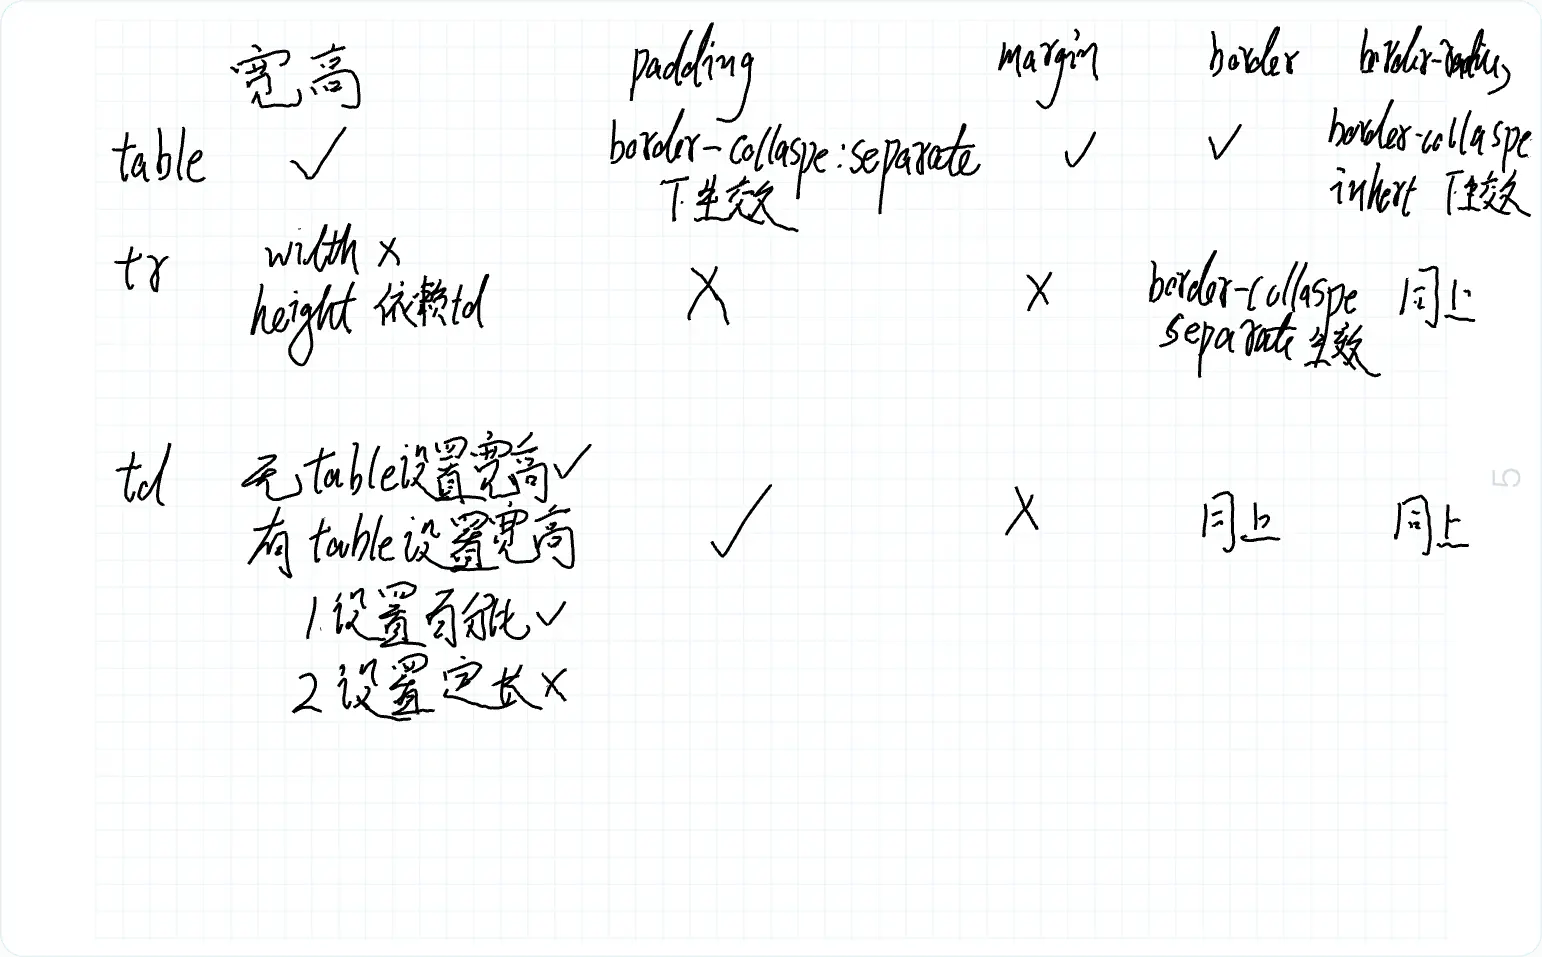 宽高 padding margin border border-radius
table ✓ border-collaspe:separate ✓ ✓ border-collaspe
下生效 inhert 下生效
tr width × × × border-collaspe 同上
height 依赖td separate 生效
td 无table设置宽高✓
有table设置宽高 ✓ × 同上 同上
1.设置百分比✓
2 设置定长×
5